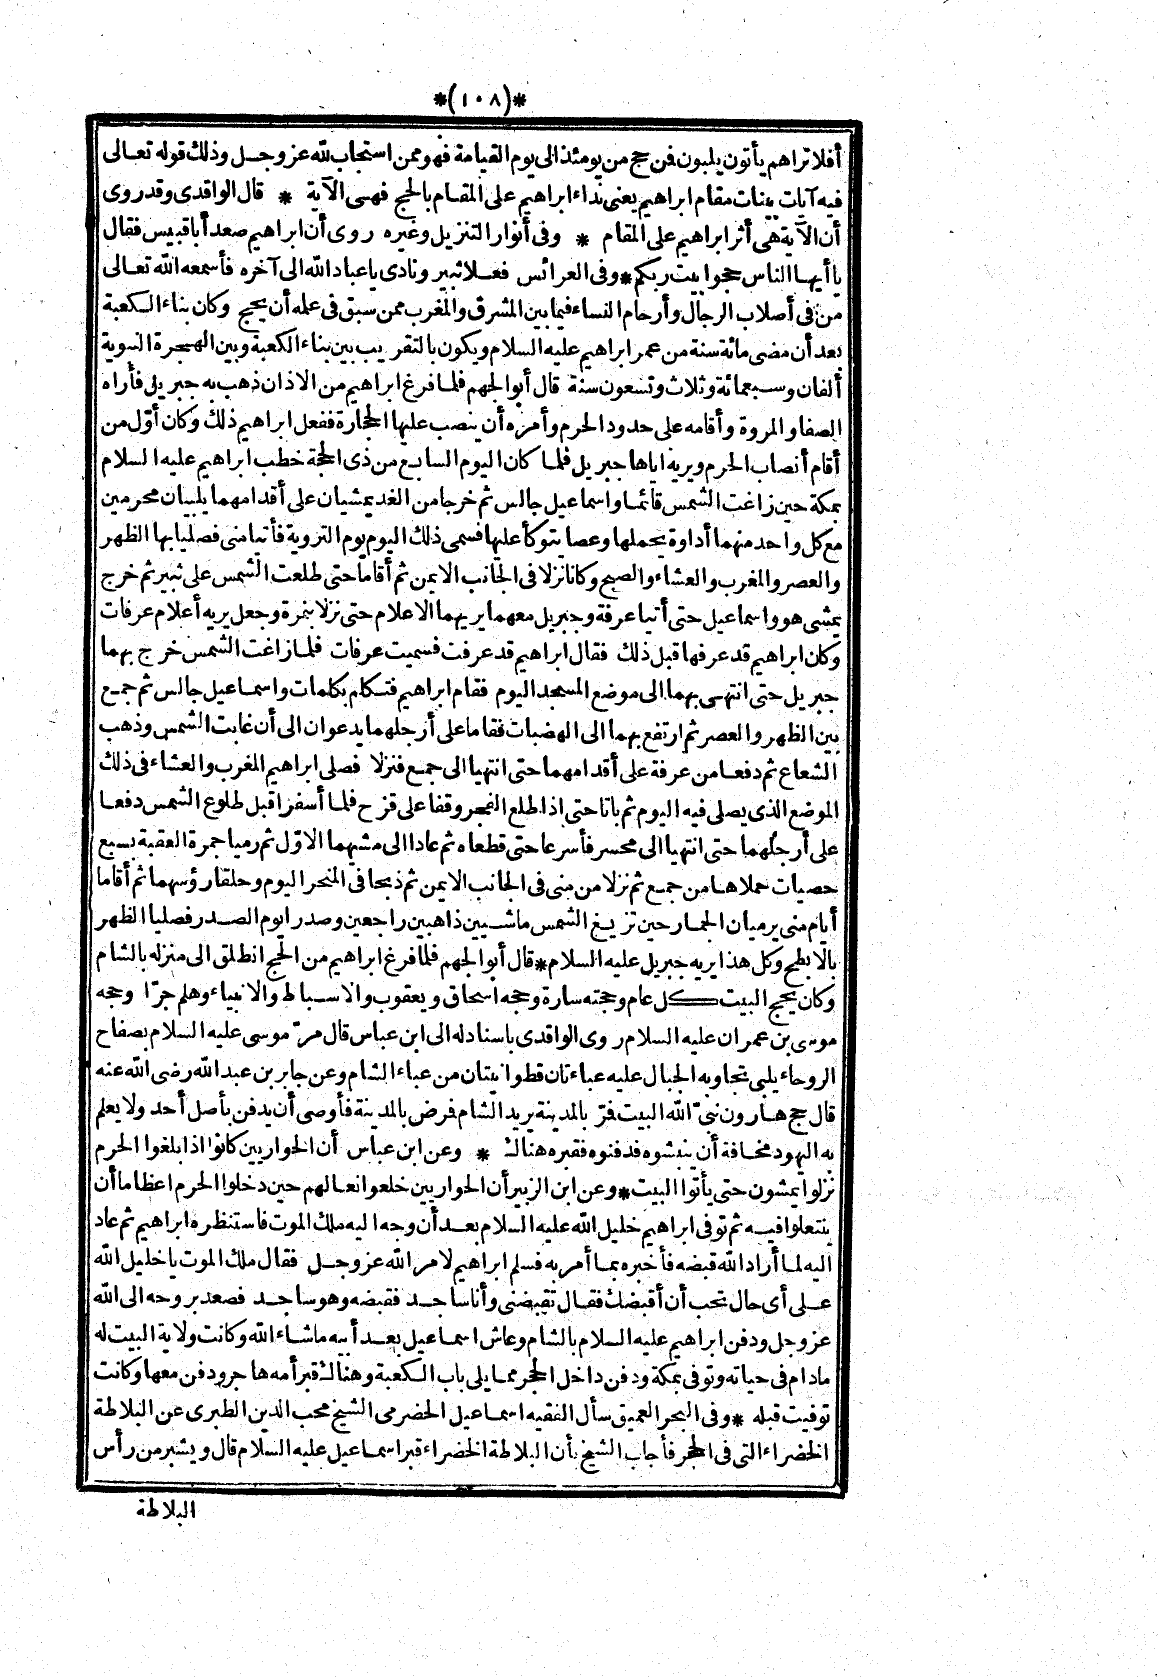 *(١٠٨)*
أفلا تراهم يأتون يلبون فمن حج من يومئذ الى يوم القيامة فهو ممن استجاب لله عز وجل وذلك قوله تعالى
فيه آيات بينات مقام ابراهيم يعنى نداء ابراهيم على المقام بالحج فهى الآية * قال الواقدى وقد روى
أن الآية هى أثر ابراهيم على المقام * وفى أنوار التنزيل وغيره روى أن ابراهيم صعد أبا قبيس فقال
يا أيها الناس حجوا بيت ربكم * وفى العرائس فعلا ثبير ونادى يا عباد الله الى آخره فأسمعه الله تعالى
من فى أصلاب الرجال وأرحام النساء فيما بين المشرق والمغرب ممن سبق فى علمه أن يحج وكان بناء الكعبة
بعد أن مضى مائة سنة من عمر ابراهيم عليه السلام ويكون بالتقريب بين بناء الكعبة وبين الهجرة النبوية
ألفان وسبعمائة وثلاث وتسعون سنة قال أبو الجهم فلما فرغ ابراهيم من الاذان ذهب به جبريل فأراه
الصفا والمروة وأقامه على حدود الحرم وأمره أن ينصب عليها الحجارة ففعل ابراهيم ذلك وكان أوّل من
أقام أنصاب الحرم ويريه اياها جبريل فلما كان اليوم السابع من ذى الحجة خطب ابراهيم عليه السلام
بمكة حين زاغت الشمس قائما واسماعيل جالس ثم خرجا من الغد يمشيان على أقدامهما يلبيان محرمين
مع كل واحد منهما أداوة يحملها وعصا يتوكأ عليها فسمى ذلك اليوم يوم التروية فأتيا منى فصليا بها الظهر
والعصر والمغرب والعشاء والصبح وكانا نزلا فى الجانب الايمن ثم أقاما حتى طلعت الشمس على ثبير ثم خرج
يمشى هو واسماعيل حتى أتيا عرفة وجبريل معهما يريهما الاعلام حتى نزلا بنمرة وجعل يريه أعلام عرفات
وكان ابراهيم قد عرفها قبل ذلك فقال ابراهيم قد عرفت فسميت عرفات فلما زاغت الشمس خرج بهما
جبريل حتى انتهى بهما الى موضع المسجد اليوم فقام ابراهيم فتكلم بكلمات واسماعيل جالس ثم جمع
بين الظهر والعصر ثم ارتفع بهما الى الهضبات فقاما على أرجلهما يدعوان الى أن غابت الشمس وذهب
الشعاع ثم دفعا من عرفة على أقدامهما حتى انتهيا الى جمع فنزلا فصلى ابراهيم المغرب والعشاء فى ذلك
الموضع الذى يصلى فيه اليوم ثم باتا حتى اذا طلع الفجر وقفا على قزح فلما أسفرا قبل طلوع الشمس دفعا
على أرجلهما حتى انتهيا الى محسر فأسرعا حتى قطعاه ثم عادا الى مشيهما الاوّل ثم رميا جمرة العقبة بسبع
حصيات حملاها من جمع ثم نزلا من منى فى الجانب الايمن ثم ذبحا فى المنحر اليوم وحلقا رؤسهما ثم أقاما
أيام منى يرميان الجمار حين تزيغ الشمس ماشيين ذاهبين راجعين وصدرا يوم الصدر فصليا الظهر
بالابطح وكل هذا يريه جبريل عليه السلام * قال أبو الجهم فلما فرغ ابراهيم من الحج انطلق الى منزله بالشام
وكان يحج البيت كل عام وحجته سارة وحجه اسحاق ويعقوب والاسباط والانبياء وهلم جرّا وحجه
موسى بن عمران عليه السلام روى الواقدى باسناد له الى ابن عباس قال مرّ موسى عليه السلام بصفاح
الروحاء يلبى تجاوبه الجبال عليه عباءتان قطوانيتان من عباء الشام وعن جابر بن عبد الله رضى الله عنه
قال حج هارون نبىّ الله البيت فمرّ بالمدينة يريد الشام فمرض بالمدينة فأوصى أن يدفن بأصل أحد ولا يعلم
به اليهود مخافة أن ينبشوه فدفنوه فقبره هناك * وعن ابن عباس أن الحواريين كانوا اذا بلغوا الحرم
نزلوا يمشون حتى يأتوا البيت * وعن ابن الزبير أن الحواريين خلعوا نعالهم حين دخلوا الحرم اعظاما أن
ينتعلوا فيه ثم توفى ابراهيم خليل الله عليه السلام بعد أن وجه اليه ملك الموت فاستنظره ابراهيم ثم عاد
اليه لما أراد الله قبضه فأخبره بما أمر به فسلم ابراهيم لامر الله عز وجل فقال ملك الموت يا خليل الله
على أى حال تحب أن أقبضك فقال تقبضنى وأنا ساجد فقبضه وهو ساجد فصعد بروحه الى الله
عز وجل ودفن ابراهيم عليه السلام بالشام وعاش اسماعيل بعد أبيه ما شاء الله وكانت ولاية البيت له
مادام فى حياته وتوفى بمكة ودفن داخل الحجر مما يلى باب الكعبة وهناك قبر أمه هاجر ودفن معها وكانت
توفيت قبله * وفى البحر العميق سأل الفقيه اسماعيل الحضرمى الشيخ محب الدين الطبرى عن البلاطة
الخضراء التى فى الحجر فأجاب الشيخ بأن البلاطة الخضراء قبر اسماعيل عليه السلام قال ويشبر من رأس
البلاطة